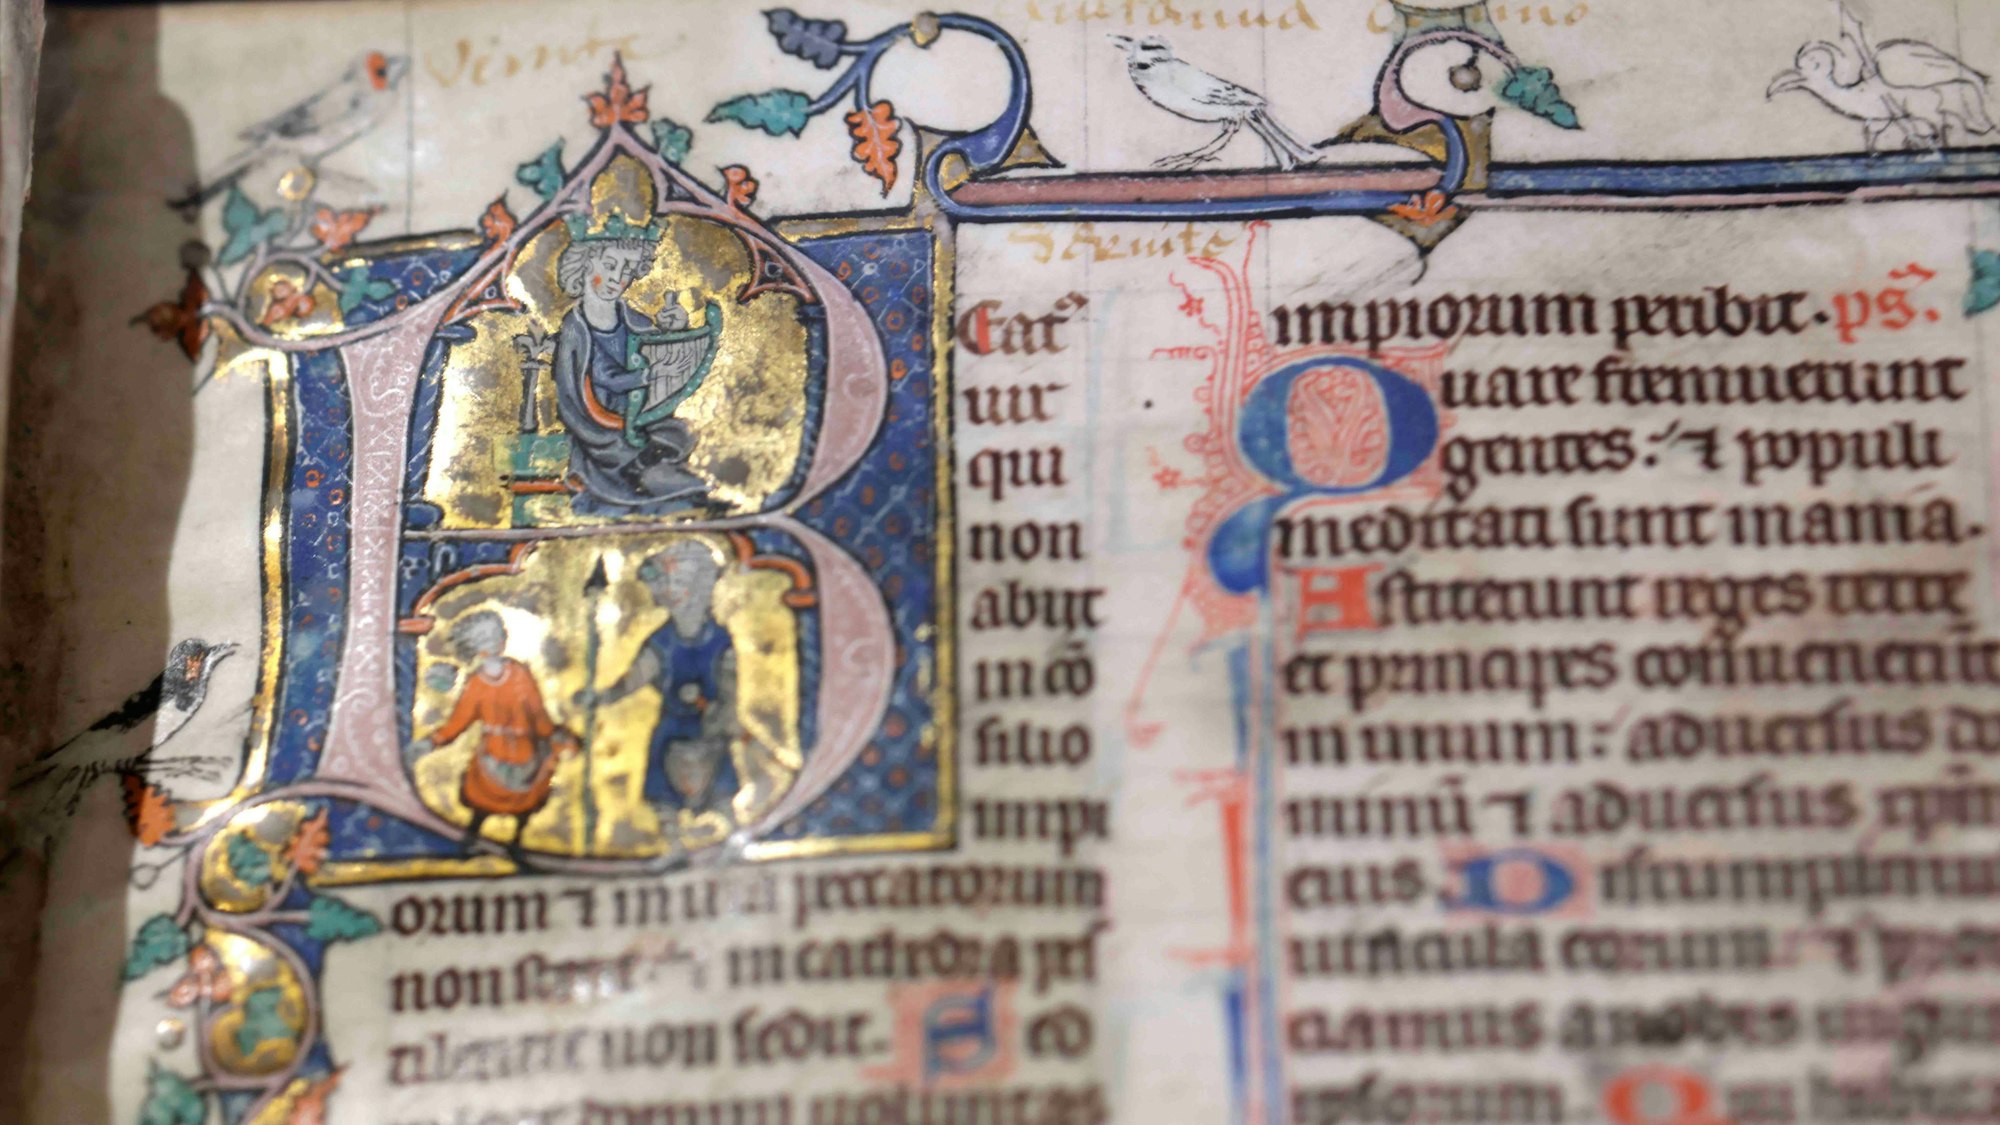 Venite
Seruite
B Eatꝰ
uir
qui
non
abijt
in cō
silio
impi
orum ⁊ in uia peccatorum
non stetit: ⁊ in cathedra pes
tilentie non sedit. Sed
uoluntas
impiorum peribit. pš.
Quare fremuerunt
gentes: ⁊ populi
meditati sunt inania.
Astiterunt reges terre
et principes conuenerūt
in unum: aduersus do
minū ⁊ aduersus xp̄m
eius. Dirumpamus
uincula eorum: ⁊
ciamus a nobis iugum
ipsorum. Qui habitat